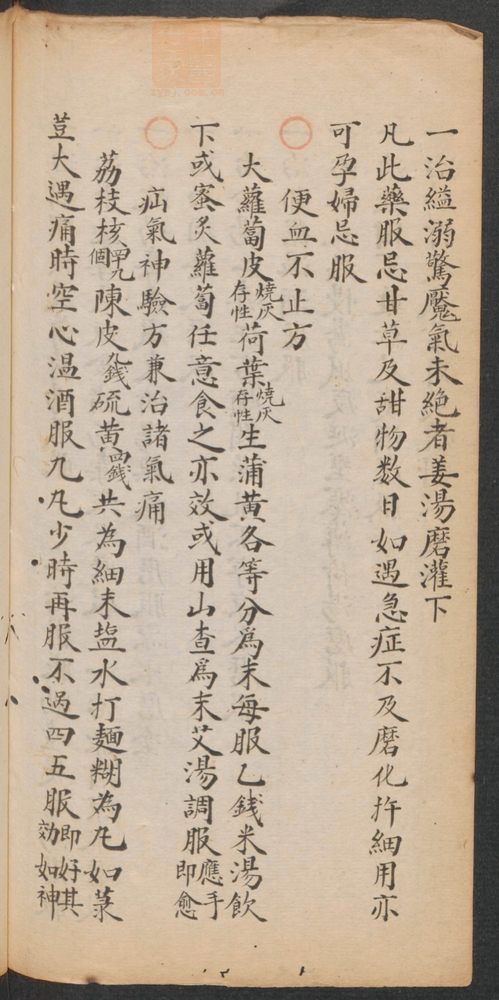 一治縊溺驚魘氣未絶者姜湯磨灌下
凡此藥服忌甘草及甜物数日如遇急症不及磨化杵細用亦
可孕婦忌服
便血不止方
大蘿蔔皮燒灰存性荷葉燒灰存性生蒲黄各等分爲末每服乙錢米湯飲
下或蜜炙蘿蔔任意食之亦效或用山查爲末艾湯調服應手即愈
疝氣神驗方兼治諸氣痛
荔枝核四十九個陳皮九錢硫黄四錢共為細末塩水打麵糊為丸如菉
荳大遇痛時空心温酒服九丸少時再服不過四五服即好其効如神